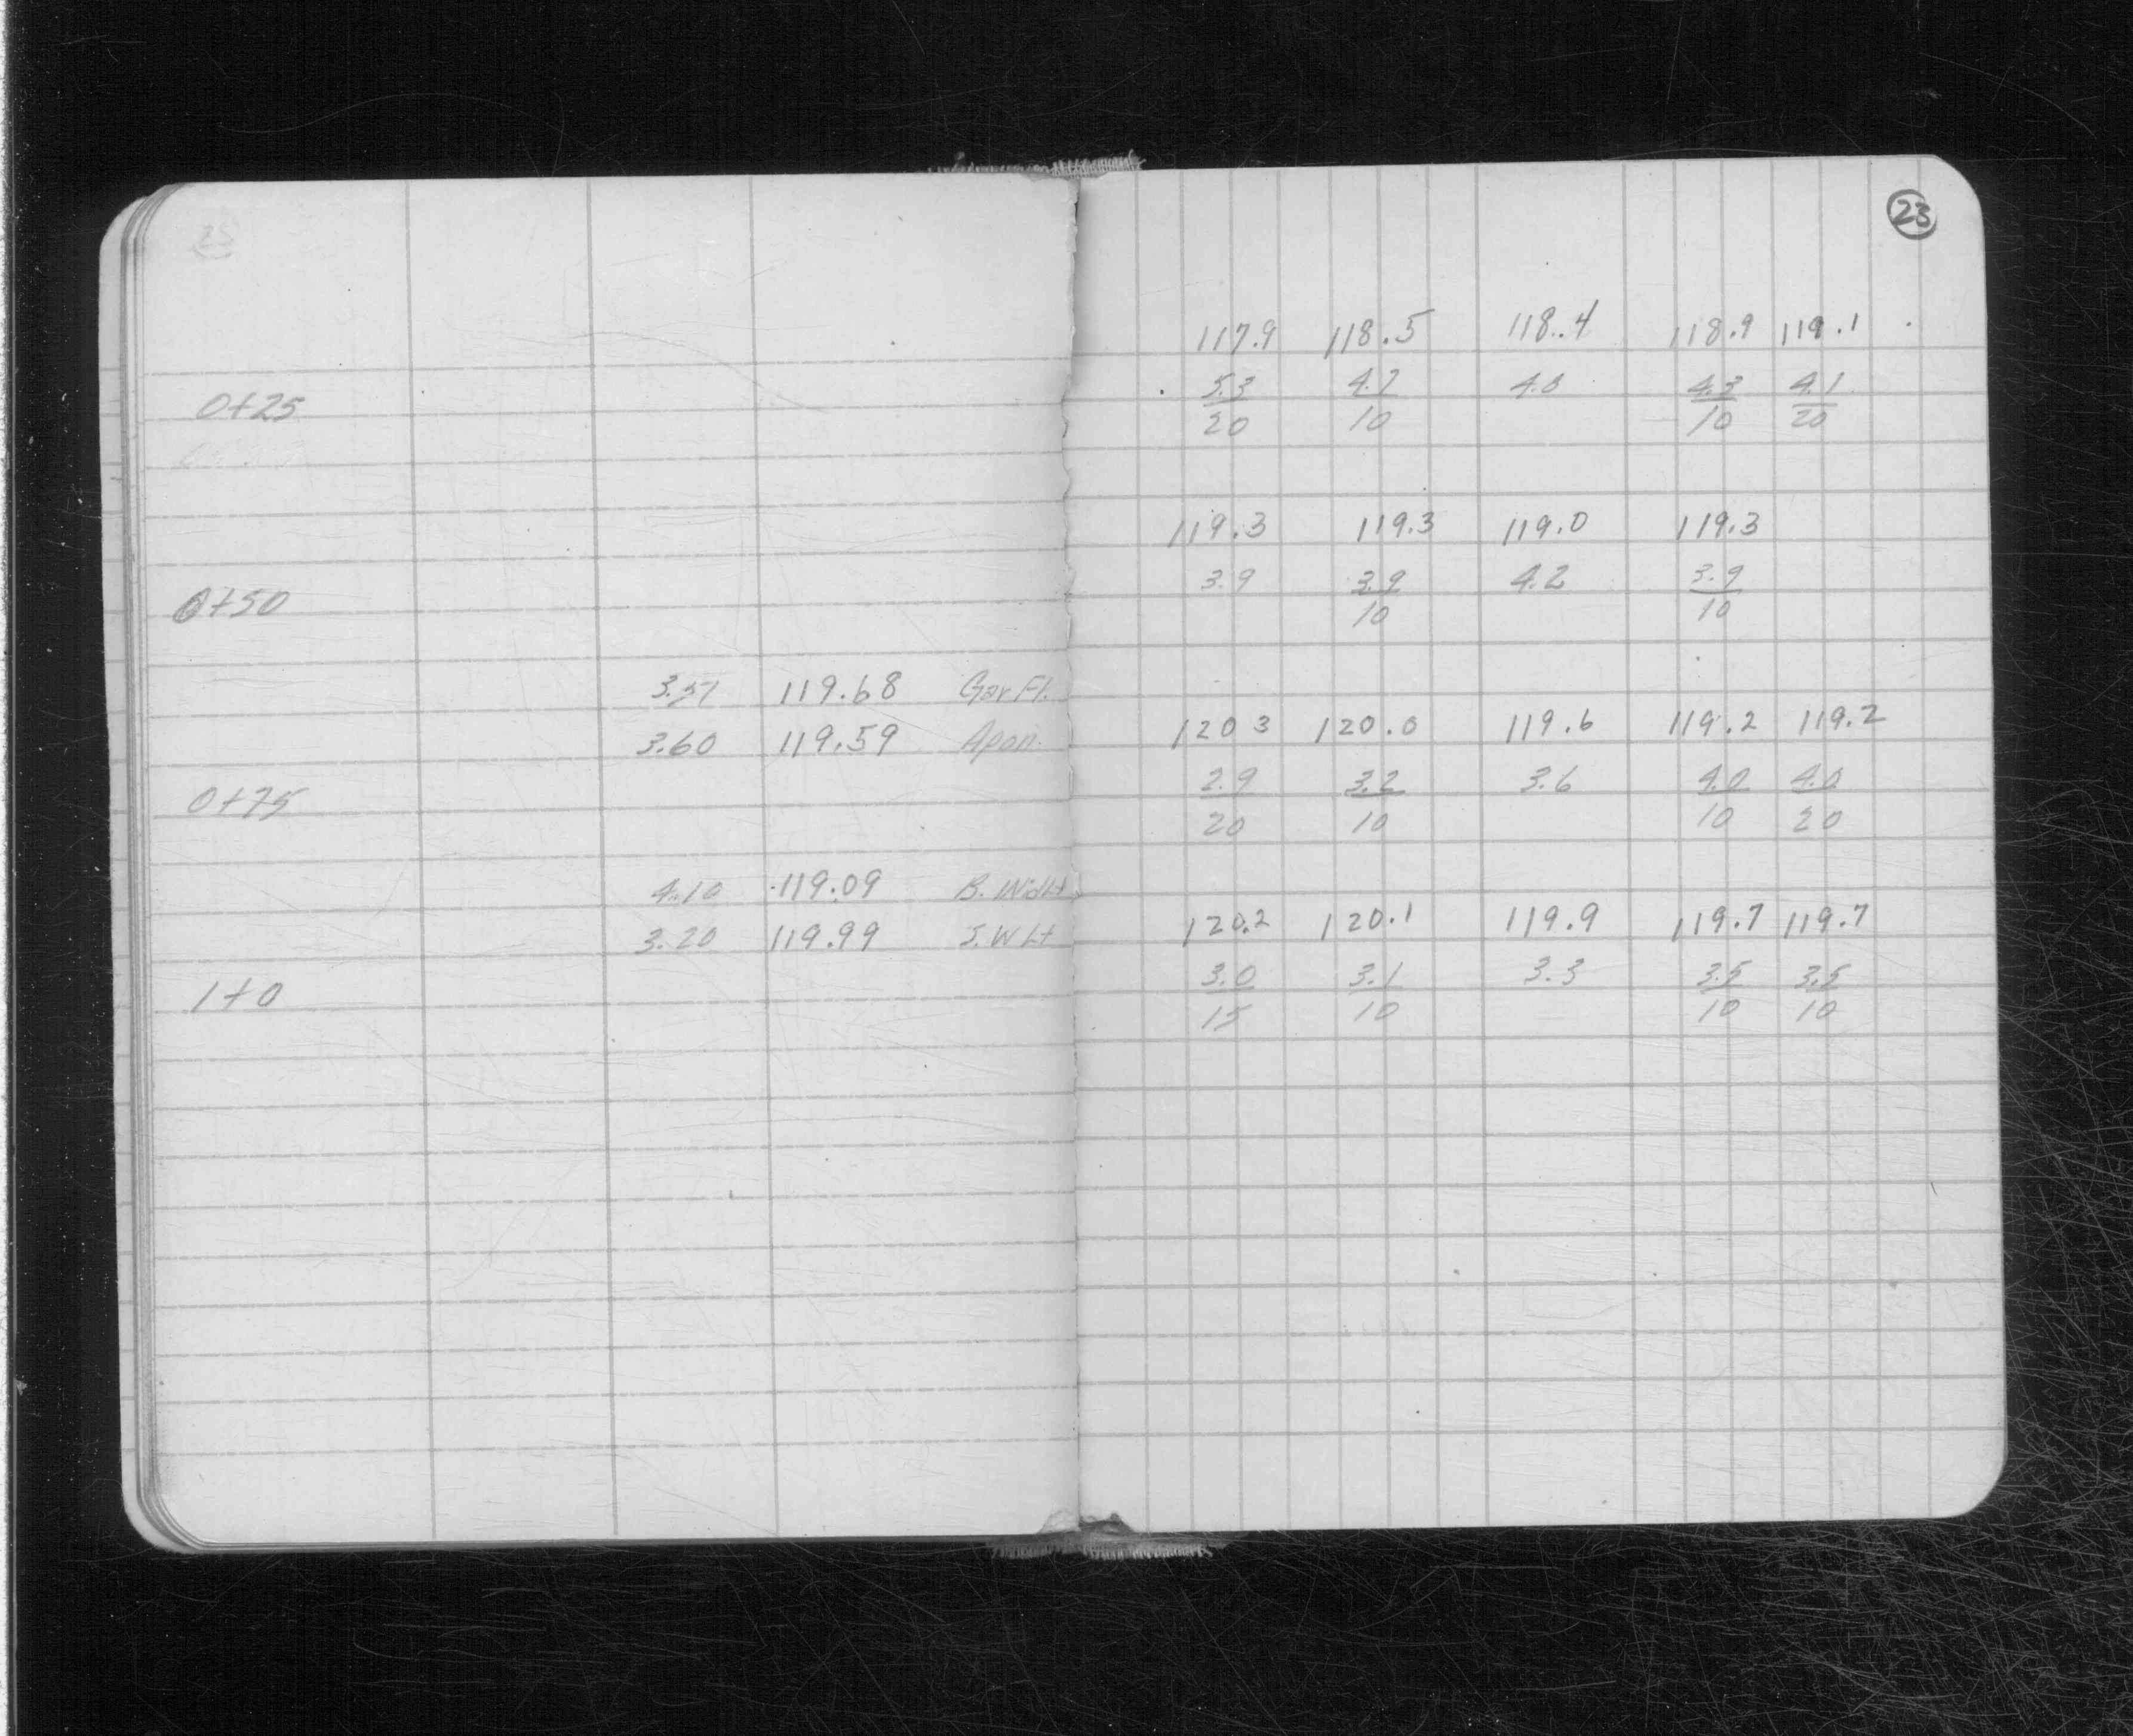 23
117.9 118.5 118.4 118.9 119.1
5.3 4.7 4.8 4.3 4.1
0+25
20 10 10 20
119.3 119.3 119.0 119.3
3.9 3.9 4.2 3.9
0+50
10 10
3.51 119.68 Gar. Fl.
120 3 120.0 119.6 119.2 119.2
3.60 119.59 Apon.
2.9 3.2 3.6 4.0 4.0
0+75
20 10 10 20
4.10 119.09 B.
120.2 120.1 119.9 119.7 119.7
3.20 119.99 S.W Lt
3.0 3.1 3.3 3.5 3.5
1+0
15 10 10 10